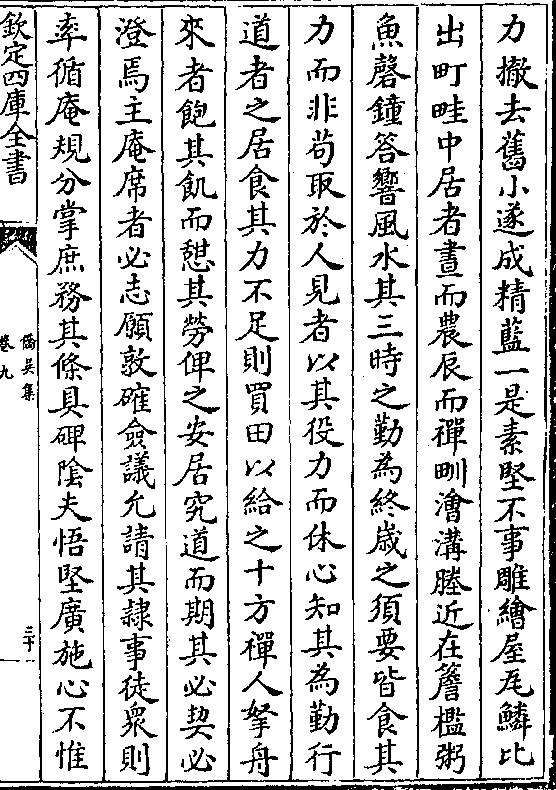 力撤去舊小遂成精藍一是素堅不事雕繪屋瓦鱗比
出町畦中居者晝而農辰而禪甽澮溝塍近在簷楹粥
魚磬鐘答響風水其三時之勤為終歲之須要皆食其
力而非苟取於人見者以其役力而休心知其為勤行
道者之居食其力不足則買田以給之十方禪人拏舟
來者飽其飢而憇其勞俾之安居究道而期其必契必
澄焉主庵席者必志願敦確僉議允請其隷事徒衆則
率循庵規分掌庶務其條具碑隂夫悟堅廣施心不惟
欽定四庫全書
僑吳集
卷九
三十